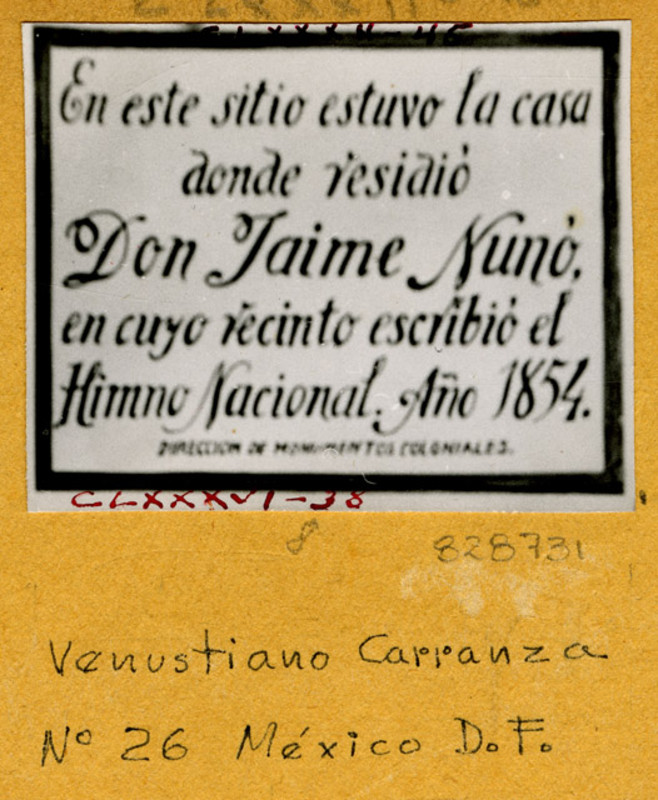 En este sitio estuvo la casa
donde residió
Don Jaime Nunó,
en cuyo recinto escribió el
Himno Nacional. Año 1854.
DIRECCION DE MONUMENTOS COLONIALES.
CLXXXVI-38
8
828731
Venustiano Carranza
Nº 26 México D.F.